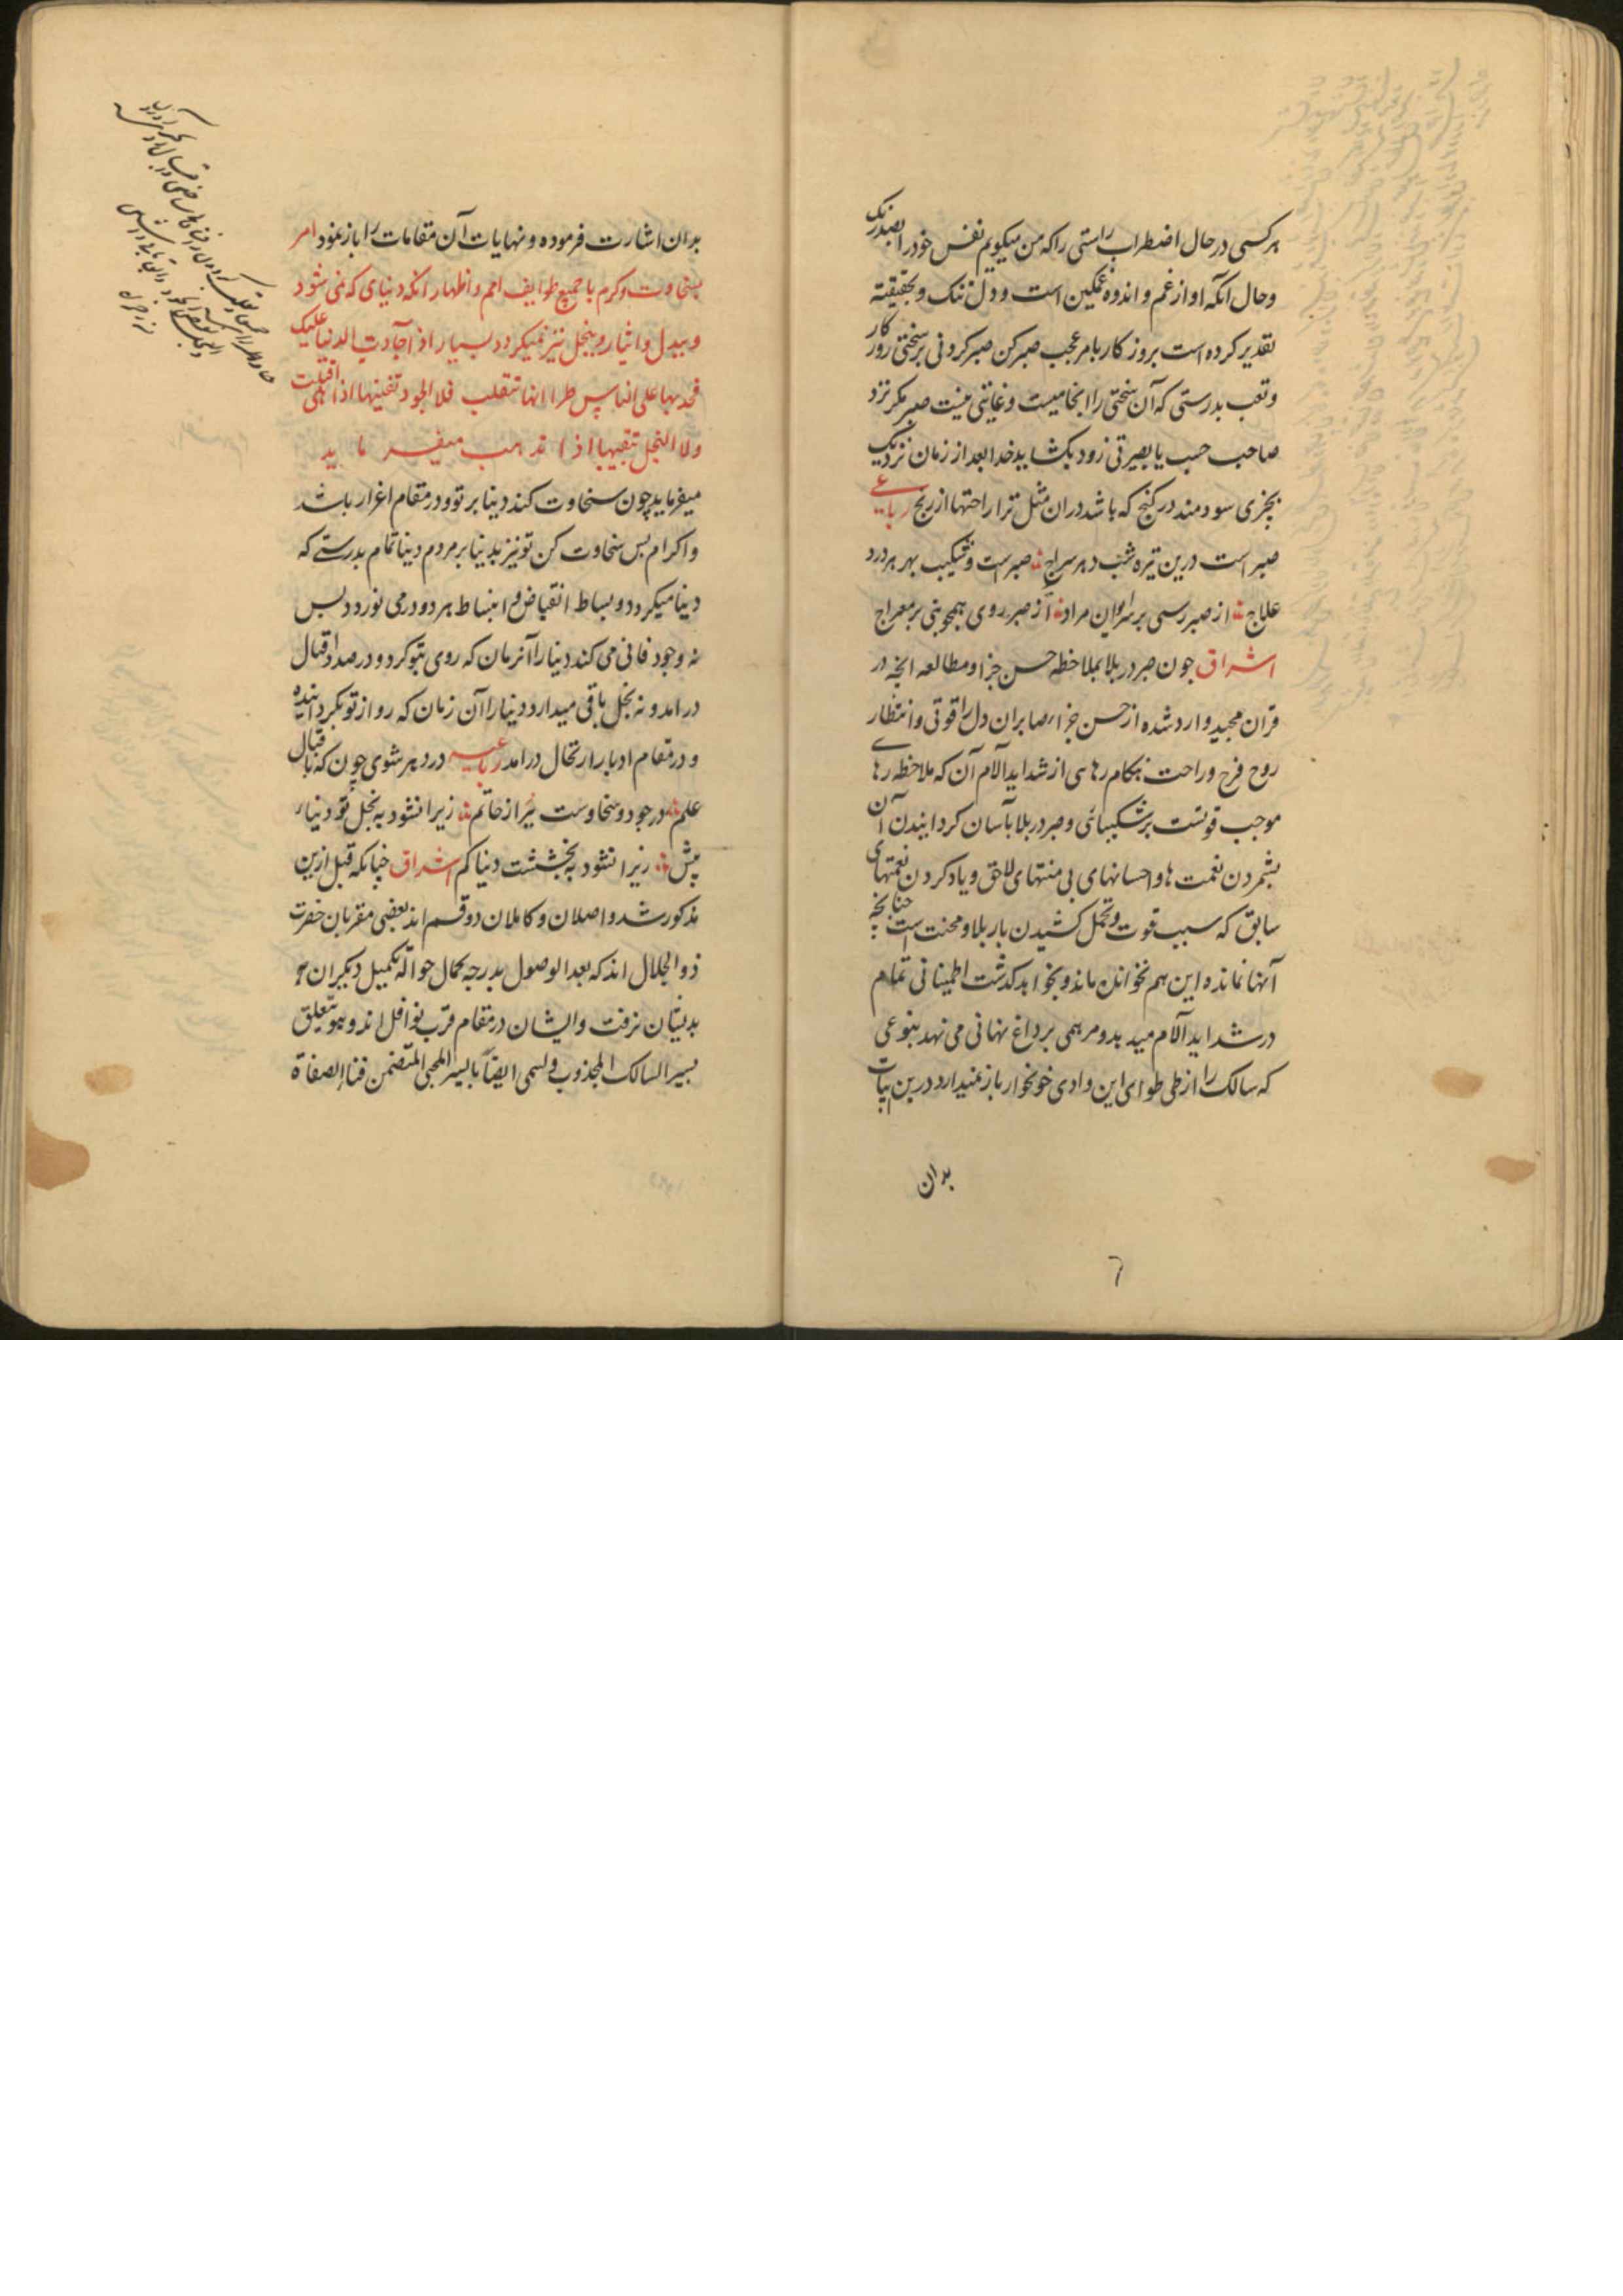 هر کسی در حال اضطراب راستی را که من میکویم نفس خود را بصدر تنک
و حال آنکه او از غم و اندوه غمکین است و دل تنک و بحقیقته
تقدیر کرده است بروز کار بامر عجب صبر کن صبر کردنی بر سختی روز کار
و تعب بدرستی که آن سختی را انجامیست و غایتی نیست صبر مکر نزد
صاحب حسب یا بصیرتی زود بکشاید خدا بعد از زمان نزدیک
بچیزی سودمند در کنج که باشد دران مثل ترا راحتها از رنج رباعی
صبر است درین تیره شب دهر سراج صبر است و شکیب بهر هر درد
علاج از صبر رسی بر سر ایوان مراد از صبر روی همچو نبی بر معراج
اشراق جون صبر در بلا بملاحظه حسن جزا و مطالعه انچه در
قران مجید وارد شده از حسن جزاء صابران دل را قوتی و انتظار
روح فرح و راحت بهکام رهایی از شداید آلام آن که ملاحظه رها
موجب قوتست بر شکیبائی و صبر در بلا بآسان کردانیدن آن
بشمردن نعمت ها و احسانهای بی منتهای لاحق و یاد کردن نعمتهای
سابق که سبب قوت و تحمل کشیدن بار بلا و محنت است چنانچه
آنها نمانده این هم نخواهد ماند و بخواهد کذشت اطمینانی تمام
در شداید آلام میدهد و مرهمی بر داغ نهانی می نهد بنوعی
که سالک را از طی طوای این وادی خونخوار باز نمیدارد درین بیات
بدان
٦
بدان اشارت فرموده و نهایات آن مقامات را باز نمود امر
بسخاوت و کرم با جمیع طوایف امم و اظهار انکه دنیای که نمی شود
و ببذل و ایثار و ببخل نیز نمیکردد بسیار اذا جادت الدنیا علیک
فجد بها علی الناس طرا انها تتقلب فلا الجود تفنیها اذا هی اقبلت
ولا البخل تبقیها اذا تذهب میفرماید
میفرماید چون سخاوت کند دنیا بر تو و در مقام اغرار باشد
و اکرام بس سخاوت کن تو نیز بدنیا بر مردم دنیا تمام بدرستے که
دنیا میکردد و بساط انقباض و انبساط هر دو در می نوردد بس
نه وجود فانی می کند دنیا را آنزمان که روی بتو کرد و در صدد اقبال
در امد و نه بخل باقی میدارد دنیا را آن زمان که رو از تو بکردانیده
و در مقام ادبار ارتحال در امد رباعیه در دهر شوی چون که باقبال
علم در جود و سخاوت بُر از حاتم زیرا نشود به بخل تو دنیا
پیش زیرا نشود به بخششت دنیا کم اشراق چنانکه قبل ازین
مذکور شد واصلان و کاملان دو قسم اند بعضی مقربان حضرت
ذو الجلال اند که بعد الوصول بدرجه کمال حواله تکمیل دیکران
بدیشان نرفت و ایشان در مقام قرب نوافل اند و هو یتعلق
بسیر السالک المجذوب و لیسمی ایضاً بالسیر المحبی المتضمن فناء الصفاة